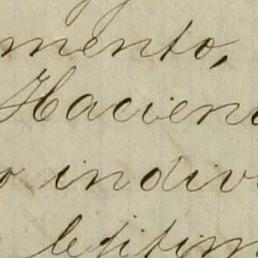 mento,
Haciend
o indivi
legitim